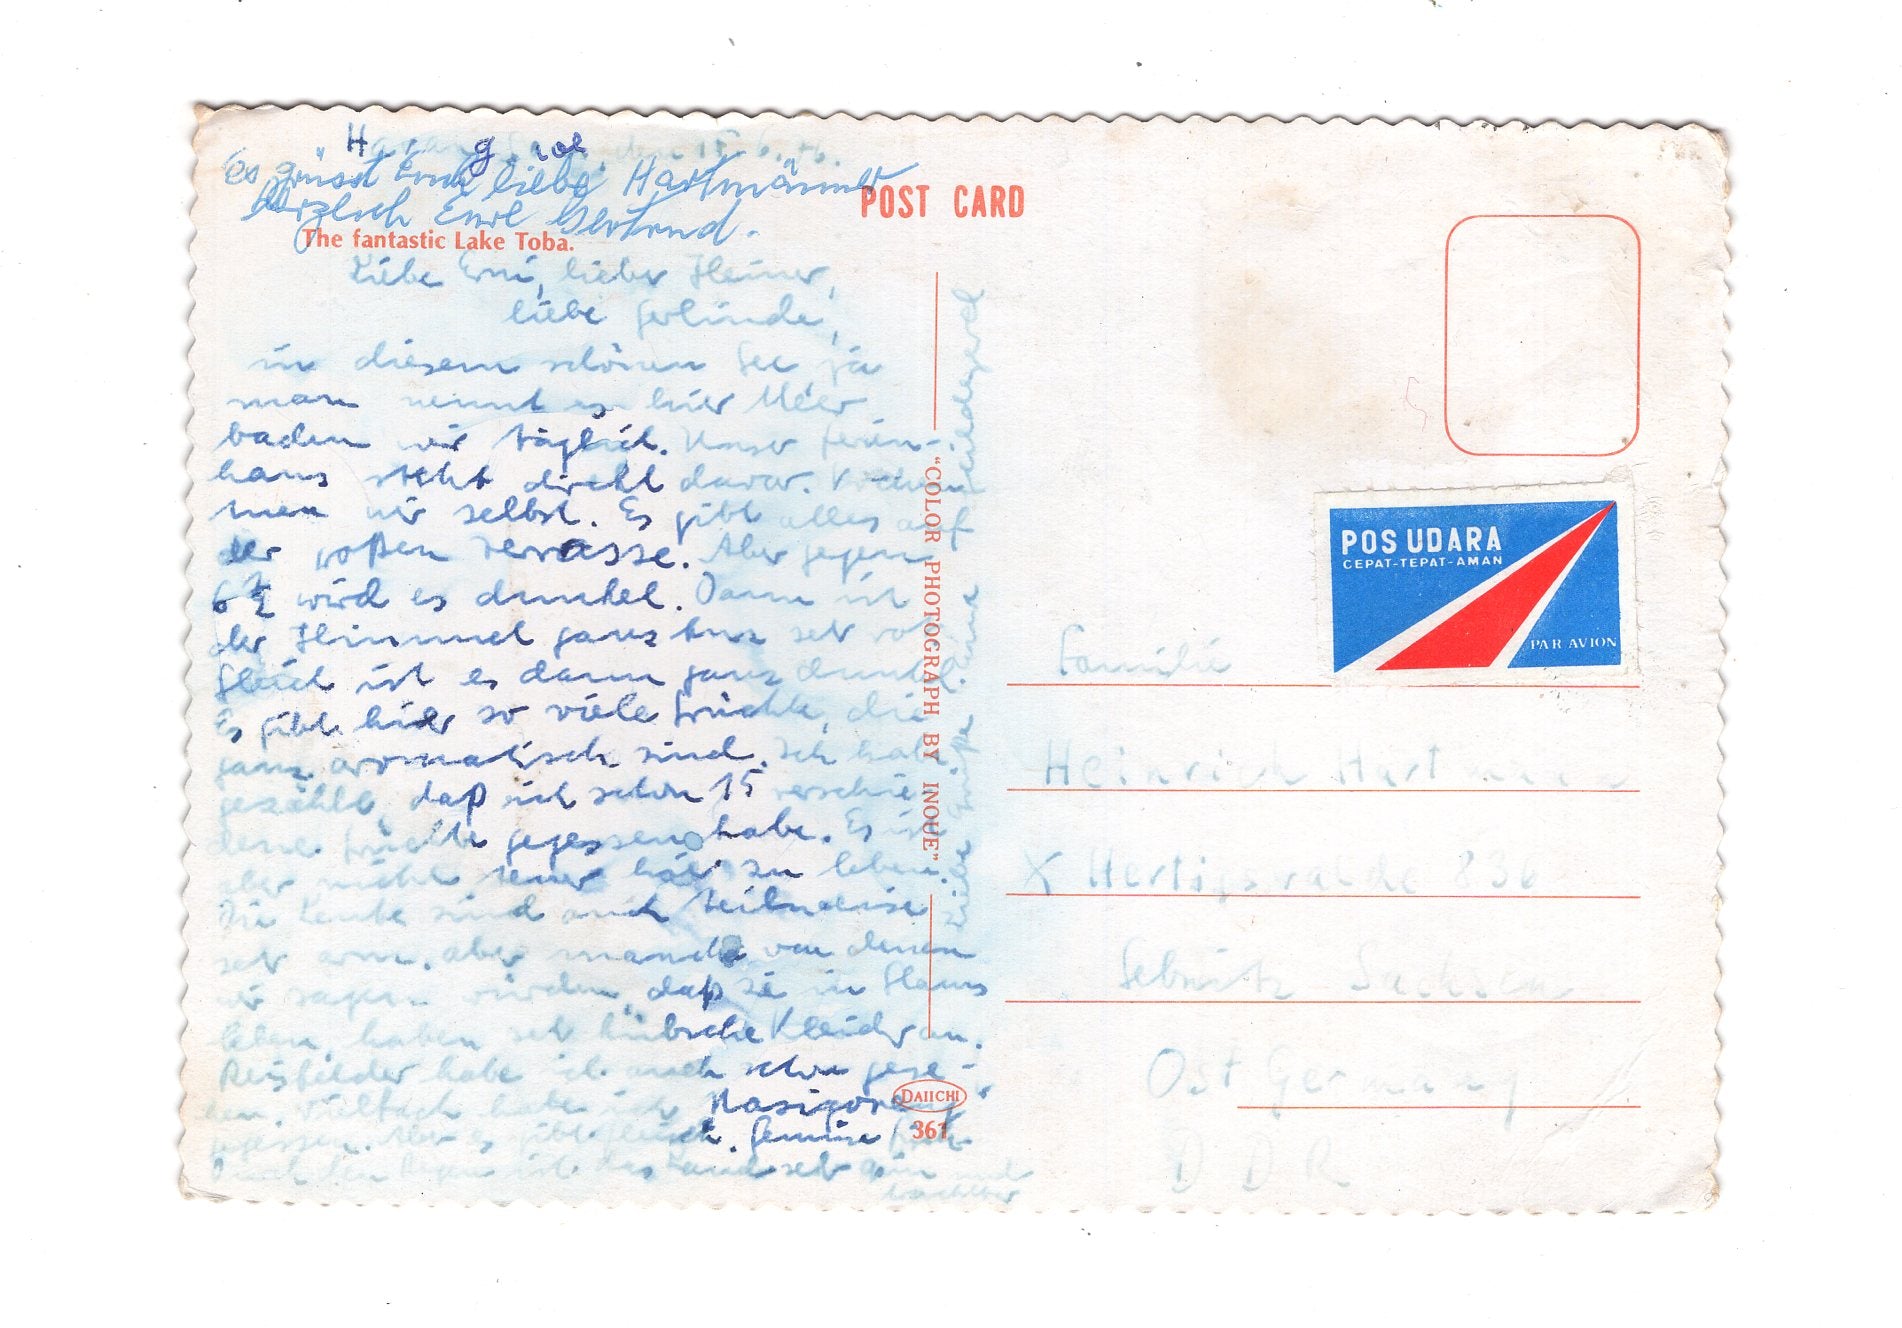 Es grüsst Euch liebe Hartmänner
herzlich Eure Gertrud.
POST CARD
The fantastic Lake Toba.
Liebe Erni, lieber Heiner,
liebe Gerlinde,
in diesem schönen See ja
man nennt es hier Meer
baden wir täglich. Unser Ferien-
haus steht direkt davor. Kochen
tuen wir selbst. Es gibt alles auf
der großen Terrasse. Aber gegen
6 1/2 wird es dunkel. Dann ist
der Himmel ganz kurz sehr rot
Gleich ist es dann ganz dunkel.
Es gibt hier so viele Früchte, die
ganz aromatisch sind. Ich habe
gezählt, daß ich schon 15 verschie-
dene Früchte gegessen habe. Es ist
aber nicht teuer hier zu leben.
Die Leute sind auch teilweise
sehr arm, aber manche von denen
wir sagen würden, daß sie im Haus
leben, haben sehr hübsche Kleider an.
Reisfelder habe ich auch schon gese-
hen, vielfach habe ich Nasigoreng
gegessen. Aber es gibt Fleisch, Gemüse
Durch den Regen ist das Land sehr grün und
fruchtbar
Liebe Grüße Eure Hildegard
"COLOR PHOTOGRAPH BY INOUE"
DAIICHI
361
POS UDARA
CEPAT-TEPAT-AMAN
PAR AVION
Familie
Heinrich Hartmann
X Hertigswalde 836
Sebnitz Sachsen
Ost Germany
DDR